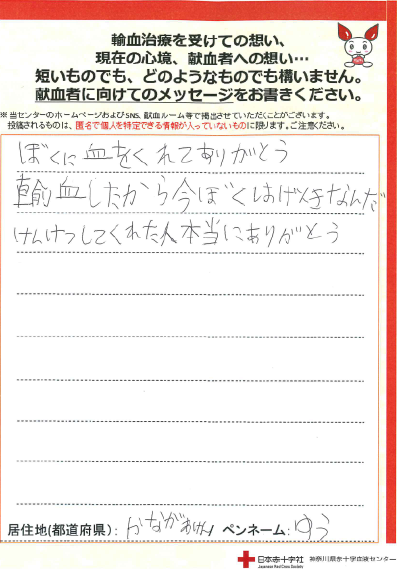 輸血治療を受けての想い、
現在の心境、献血者への想い…
短いものでも、どのようなものでも構いません。
献血者に向けてのメッセージをお書きください。
※ 当センターのホームページおよびSNS、献血ルーム等で掲出させていただくことがございます。
投稿されるものは、匿名で個人を特定できる情報が入っていないものに限ります。ご注意ください。
ぼくに血をくれてありがとう
輸血したから今ぼくはげんきなんだ
けんけつしてくれた人本当にありがとう
居住地(都道府県): かながわけん / ペンネーム: ゆう
日本赤十字社 神奈川県赤十字血液センター
Japanese Red Cross Society